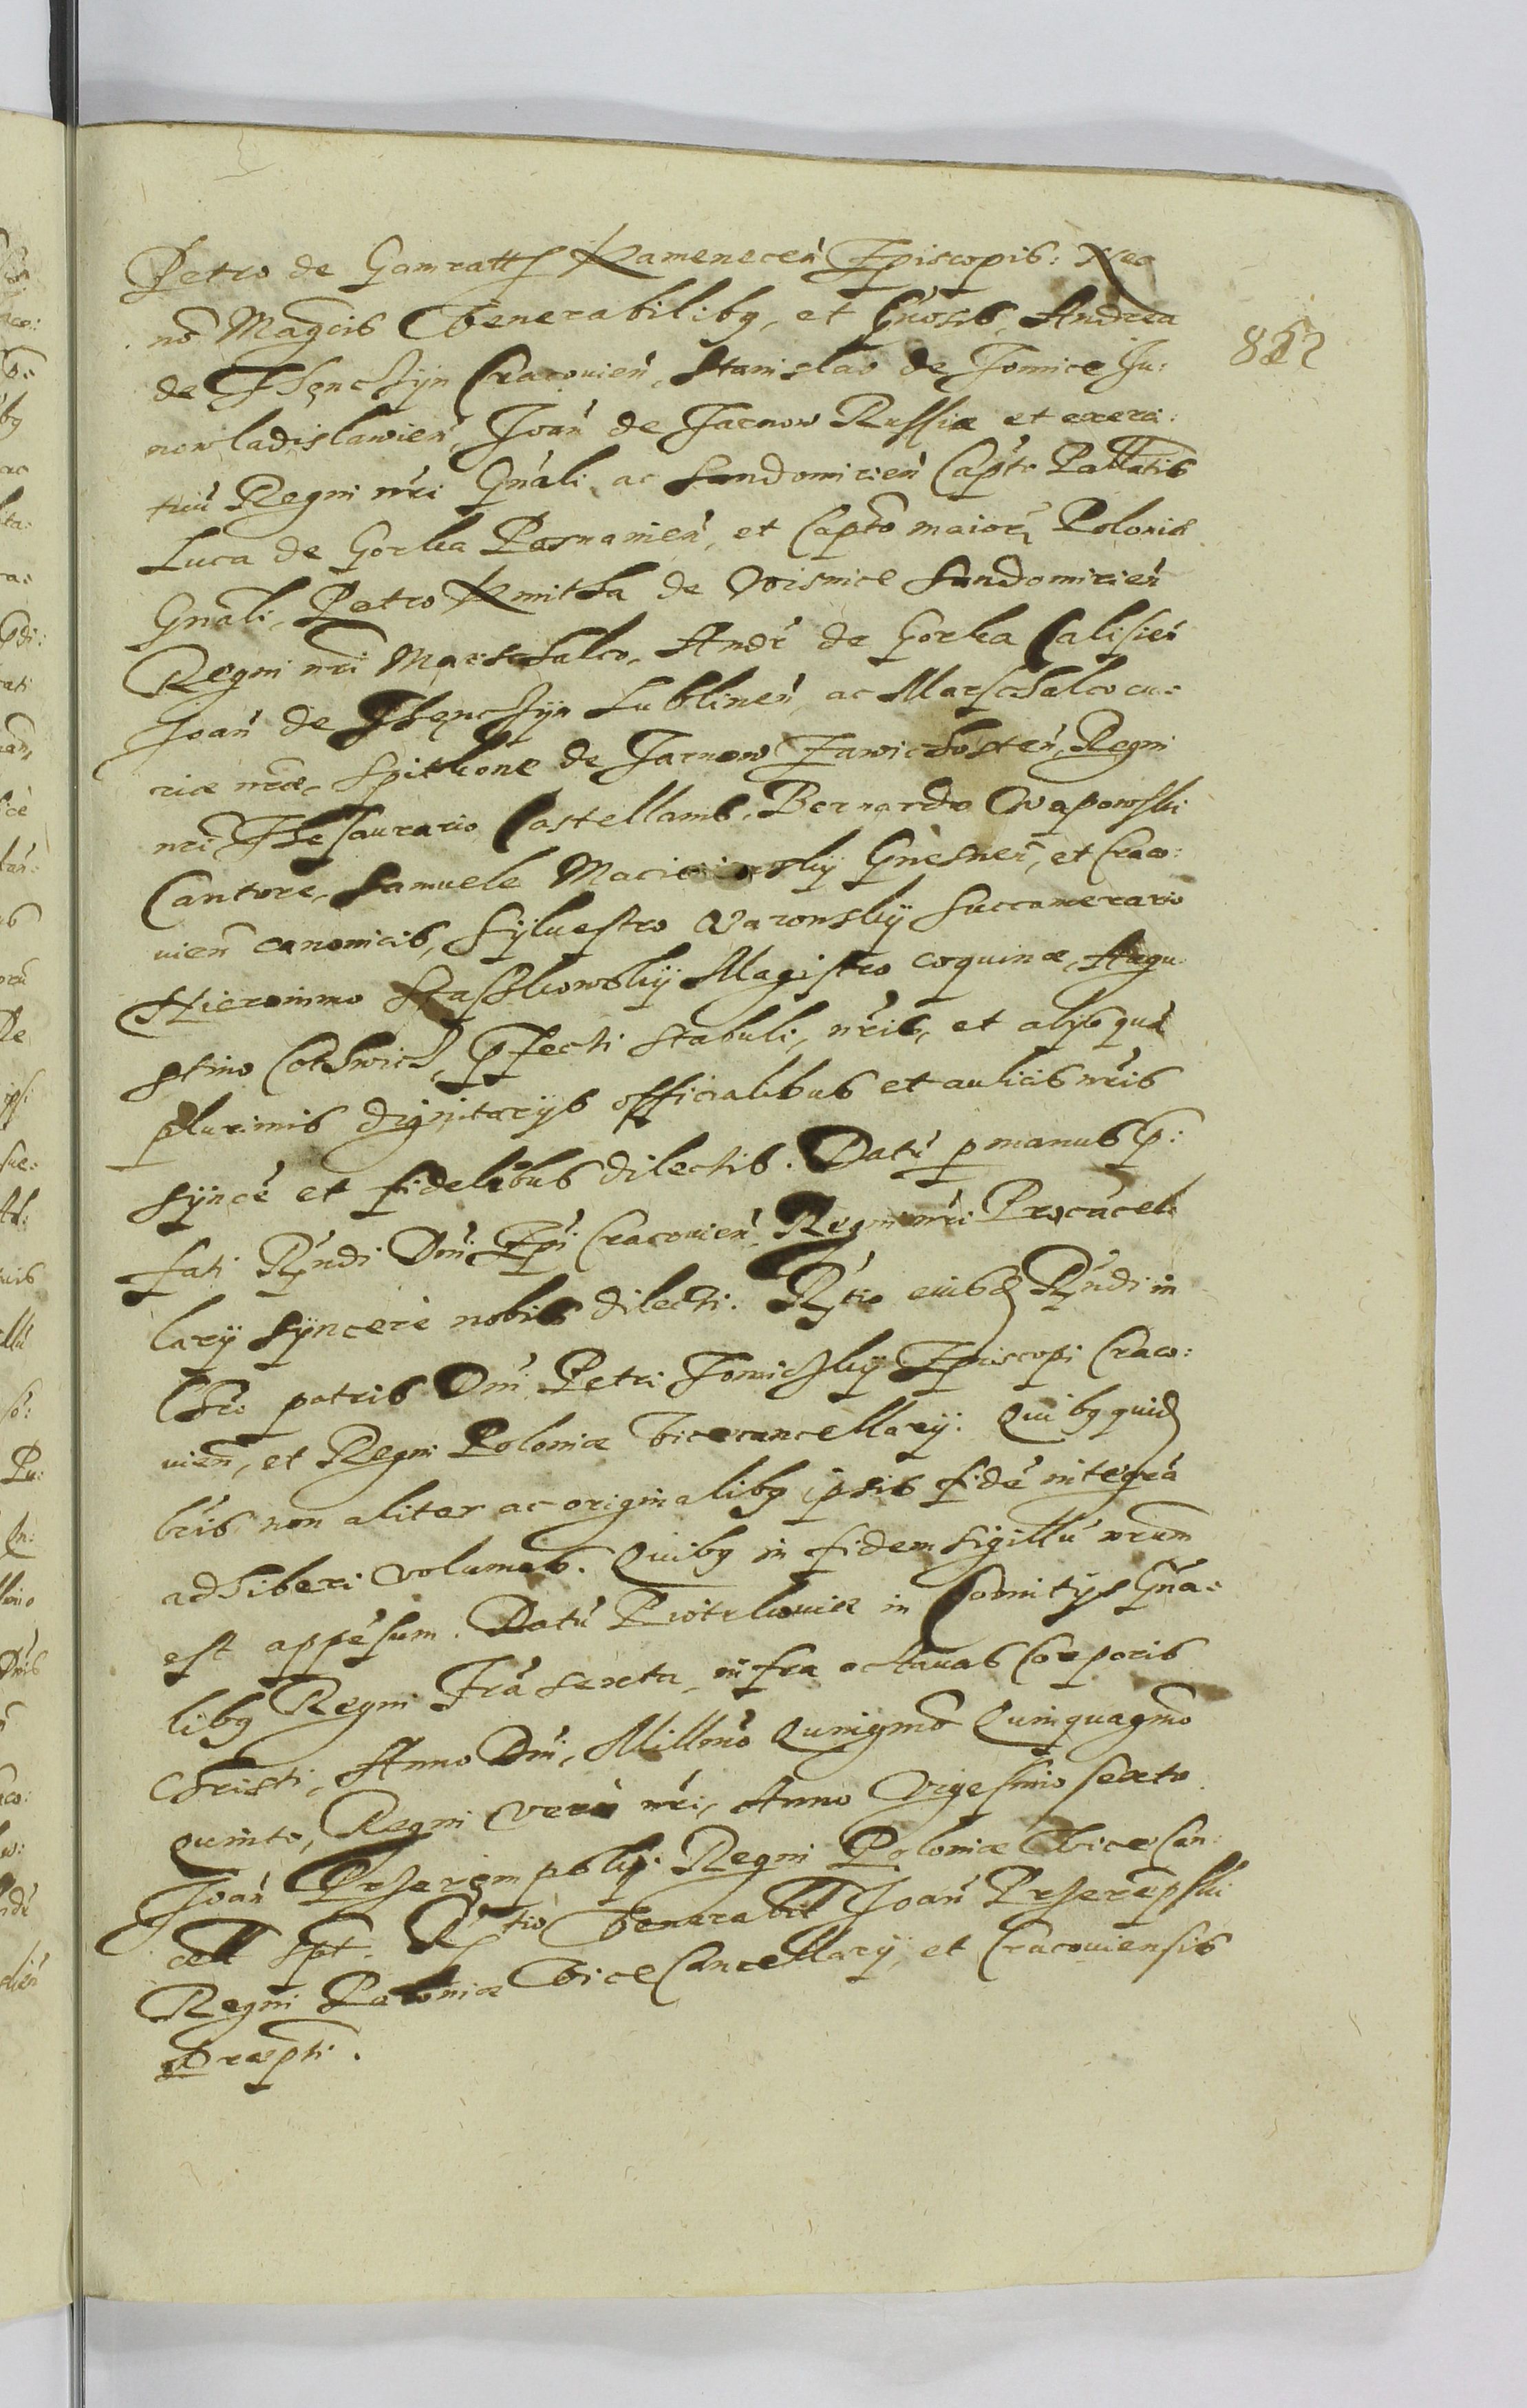 Petro de Gamratty Kamenecen̄ Episcopis: Nec
nō Mag̅cis Venerabilibꝫ, et Gn̄osis, Andrea
de Thęnczÿn Cracovien̄, Stanislao de Tomice Ju:
nowladislavien̄, Joan̄ de Tarnow Russiæ et exerci:
tuū Regni nr̄i Gn̄ali, ac Sandomirien̄ Capt̄o Pallatis
Luca de Gorka Posnanien̄, et Capt̅o maioris Poloniæ
Gnāli, Petro Kmitha de Wisnice Sandomirien̄
Regni nr̄i Marschalco, Andr̄ de Gorka Calisien̄
Joan̄ de Thęnczÿn Lublinen̄, ac Marschalco cu:
riæ nr̄æ, Spitkone de Tarnow Zawichosten̄, Regni
nr̄i Thesaurario Castellanis, Bernardo Wapowski
Cantore, Samuele Macieiowskÿ Gnesnen̄, et Craco:
vien̄ canonicis, Sÿlvestro Ozarowskÿ Succamerario
Hieronimo Staszkowskÿ Magistro coquinæ, Augu
stino Cothwicz, p̄fecti stabuli, nr̄is, et alÿs quā
plurimis dignitarÿs officialibus et aulicis nr̄is
sÿncē et fidelibus dilectis. Datū p manus p̄:
fati Rn̄di Dni Ep̄i Cracovien̄ Regni nr̄i Procācel
larÿ sÿncere nobis dilecti. R̄tio eiusd Rn̄di in
Chr̄o patris Dni Petri Tomiczkÿ Episcopi Craco:
vien̄, et Regni Poloniæ Vicecancellarÿ. Quibꝫ quid
lr̄is non aliter ac originalibꝫ ipsis fidē integrā
adhiberi volumus. Quibꝫ in fidem sigillū nr̄um
est appēsum. Datū Piotrkoviæ in Comitÿs Gn̄a:
libꝫ Regni Fr̄ia sexta, infra octavas Corporis
Christi, Anno Dni, Millmō Quingmō Quinquagmō
quinto, Regni verō nr̄i, Anno Vigesimo sexto.
Joan̄ Przeręmpskÿ Regni Poloniæ Vice Can:
cell spt. R̄tio Venerabil Joan̄ Przerēpski
Regni Poloniæ Vice Cancellarÿ, et Cracoviensis
Præpti.